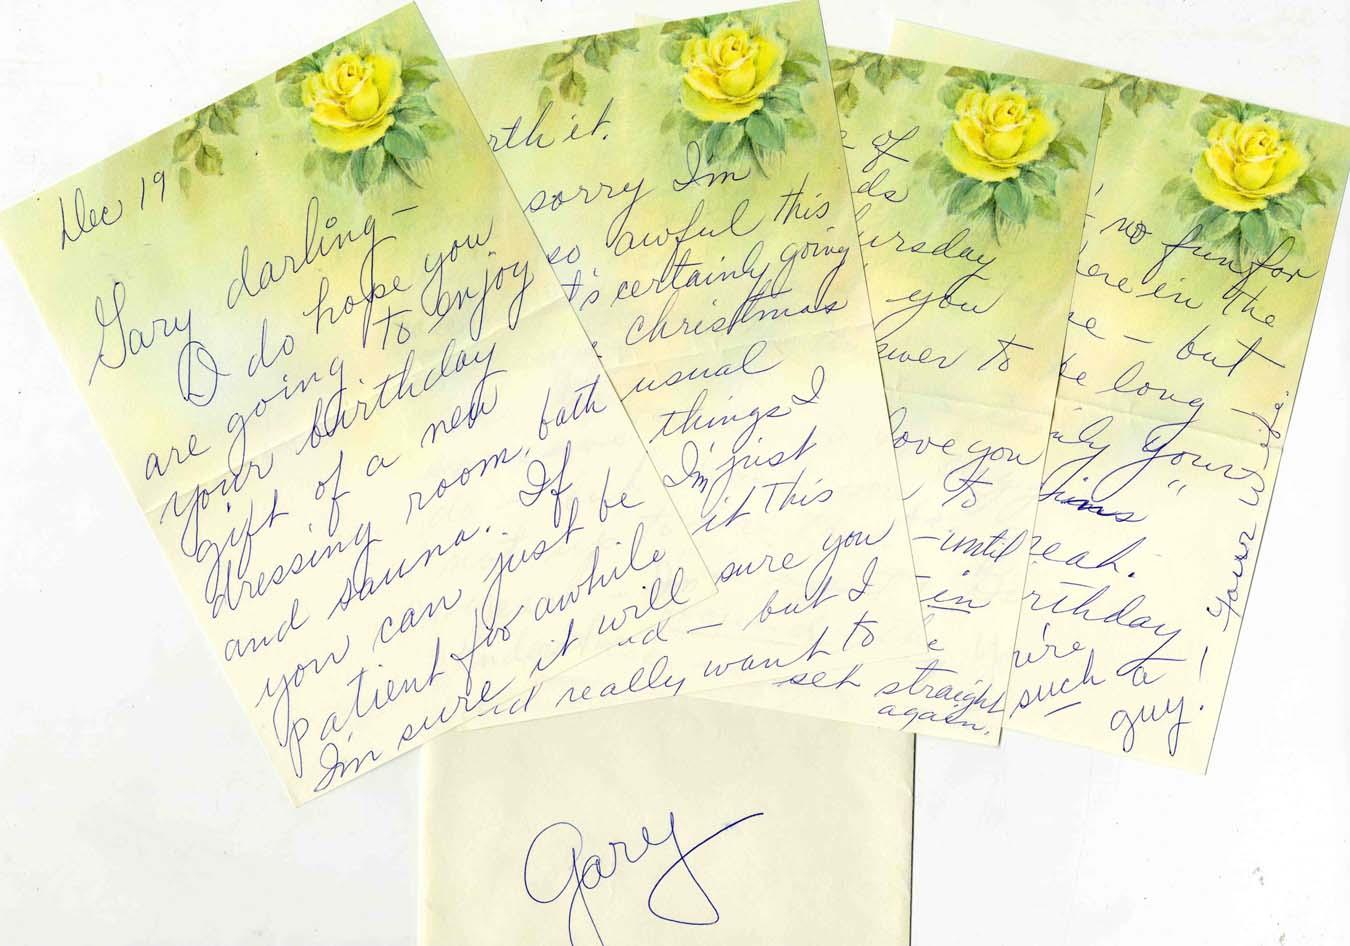 Dec 19
Gary darling-
I do hope you
are going to enjoy
your birthday
gift of a new
dressing room, bath
and sauna. If
you can just be
patient for awhile
I'm sure it will
rth it.
sorry I'm
so awful this
t's certainly going
christmas
usual
things I
I'm just
it this
sure you
d - but I
d really want to
e of
ds
ursday
you
swer to
love you
to
- until
in
e
set straight
again.
- no fun for
here in the
se - but
be long -
nly yours"
hims
yeah.
rthday
u're
such a
guy!
Your Wife.
Gary